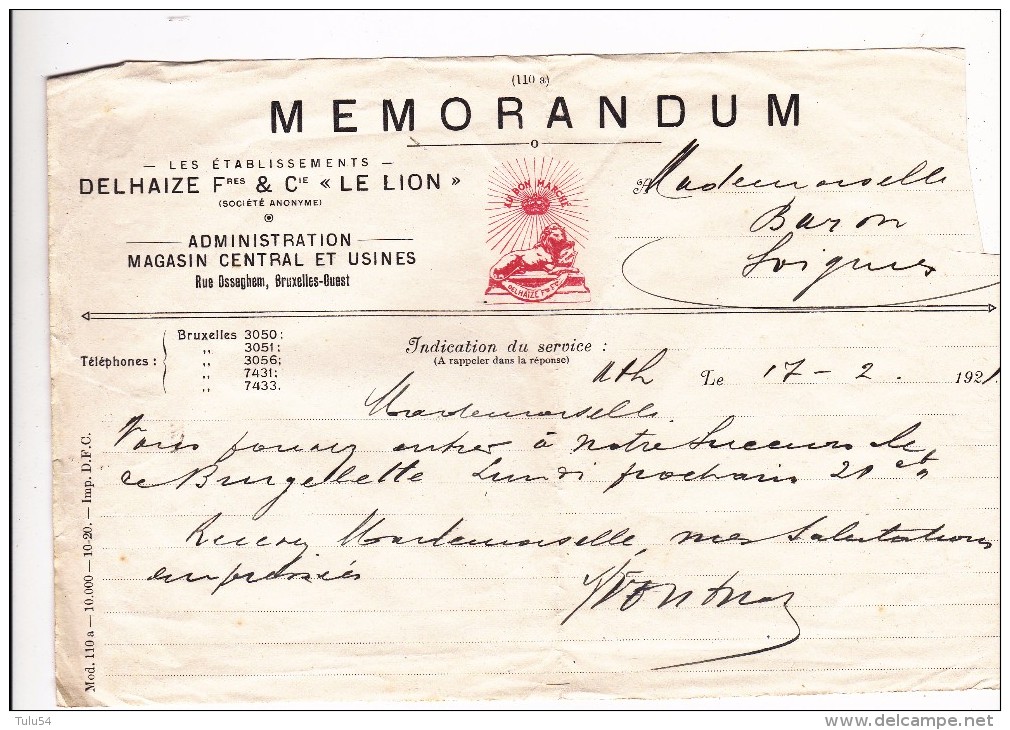 (110 a)
MEMORANDUM
— LES ÉTABLISSEMENTS —
DELHAIZE Fres & Cie « LE LION »
(SOCIÉTÉ ANONYME)
ADMINISTRATION
MAGASIN CENTRAL ET USINES
Rue Osseghem, Bruxelles-Ouest
AU BON MARCHÉ
DELHAIZE Fres & Cie
Mademoiselle
Baron
Soignies
Téléphones :
Bruxelles 3050;
„ 3051;
„ 3056;
„ 7431;
„ 7433.
Indication du service :
(A rappeler dans la réponse)
Ath Le 17 - 2 . 1921
Mademoiselle
Vous pouvez entrer à notre succursale
de Brugelette Lundi prochain 21 ct
Recevez Mademoiselle, mes salutations
empressées
Mod. 110 a — 10.000 — 10-20. — Imp. D.F.C.
Tulu54
delcampe.net